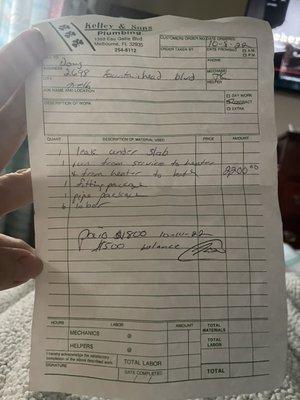 Kelley & Sons
Plumbing
1393 Eau Gallie Blvd
Melbourne, FL 32935
254-6112
CUSTOMERS ORDER NO. DATE ORDERED
10-8-22
ORDER TAKEN BY DATE PROMISED A.M. P.M.
Doug PHONE
ADDRESS 2698 Fountainhead blvd
CITY MECHANIC
HELPER
JOB NAME AND LOCATION
DAY WORK
DESCRIPTION OF WORK CONTRACT
EXTRA
QUANT. DESCRIPTION OF MATERIAL USED PRICE AMOUNT
1 leak under slab
1 run from service to heater
& from heater to bath 2300 00
1 fitting package
1 pipe package
& labor
Paid $1800 10-11-22
$500 balance
HOURS LABOR AMOUNT TOTAL MATERIALS
MECHANICS @
TOTAL LABOR
HELPERS @
I hereby acknowledge the satisfactory
completion of the above described work. TOTAL LABOR
SIGNATURE DATE COMPLETED / / TOTAL